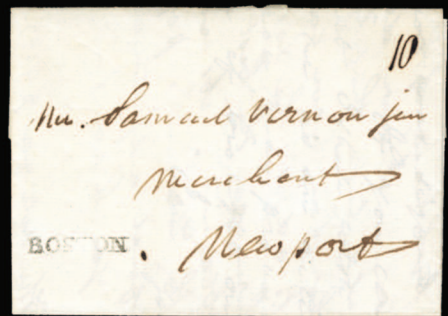 10
Mr. Samuel Vernon jun
Merchant
BOSTON. Newport